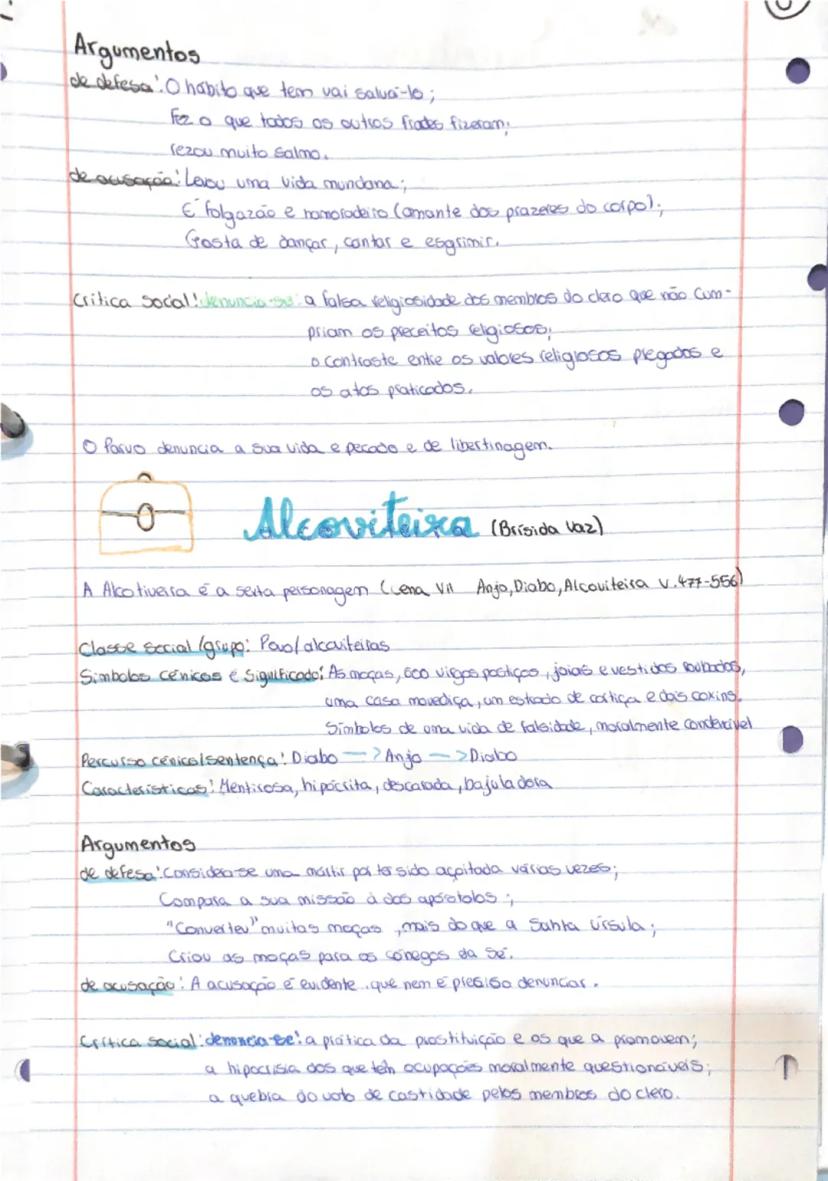 Argumentos
de defesa: O hábito que tem vai salvá-lo;
Fez o que todos os outros frades fizeram;
rezou muito salmo.
de acusação: Levou uma vida mundana;
É folgazão e namoradeiro (amante dos prazeres do corpo);
Gosta de dançar, cantar e esgrimir.
Crítica social: denuncia-se: a falsa religiosidade dos membros do clero que não cum-
priam os preceitos religiosos;
o contraste entre os valores religiosos pregados e
os atos praticados.
O Parvo denuncia a sua vida e pecado e de libertinagem.
Alcoviteira (Brísida Vaz)
A Alcotiveira é a sexta personagem (cena VII Anjo, Diabo, Alcoviteira v.477-556)
Classe social/grupo: Povo/alcoviteiras
Símbolos cénicos e significado: As moças, 600 virgos postiços, joias e vestidos roubados,
uma casa movediça, um estrado de cortiça e dois coxins.
Símbolos de uma vida de falsidade, moralmente condenável
Percurso cénico/sentença: Diabo —> Anjo —> Diabo
Características: Mentirosa, hipócrita, descarada, bajuladora
Argumentos
de defesa: Considera-se uma mártir por ter sido açoitada várias vezes;
Compara a sua missão à dos apóstolos;
"Converteu" muitas moças, mais do que a Santa Úrsula;
Criou as moças para os cónegos da Sé.
de acusação: A acusação é evidente, que nem é preciso denunciar.
Crítica social: denuncia-se: a prática da prostituição e os que a promovem;
a hipocrisia dos que têm ocupações moralmente questionáveis;
a quebra do voto de castidade pelos membros do clero.